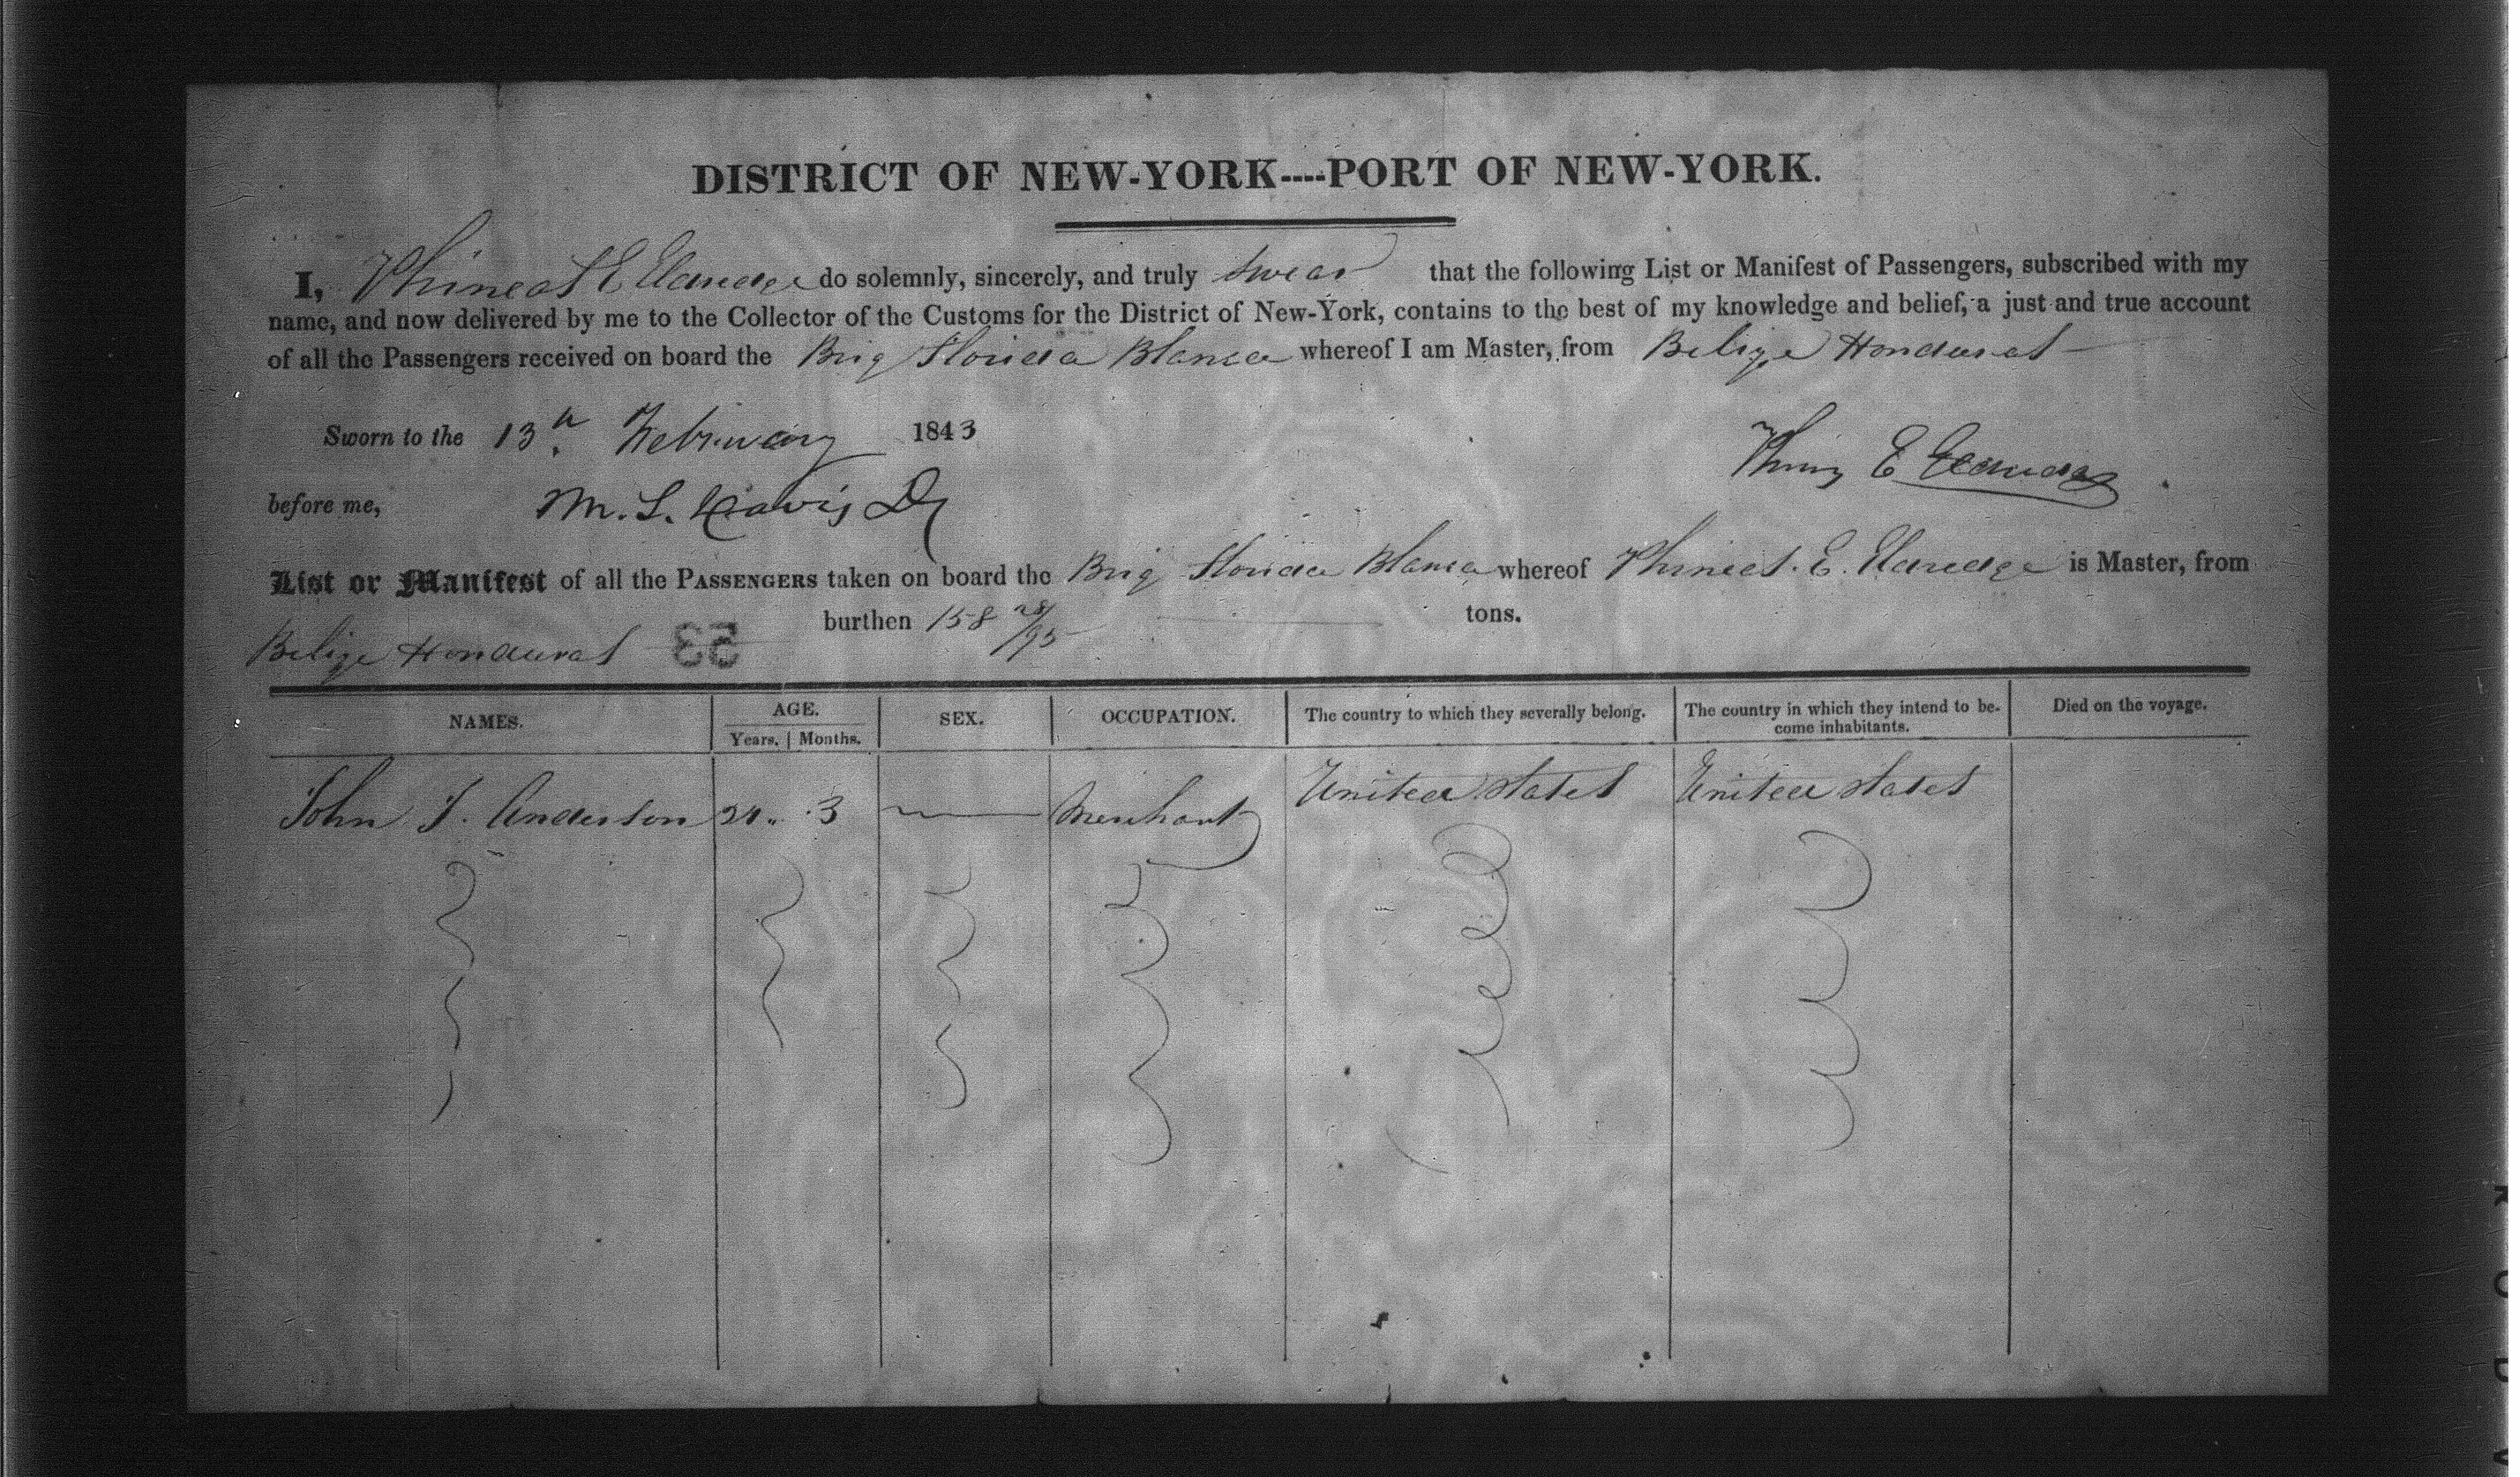 DISTRICT OF NEW-YORK----PORT OF NEW-YORK.
I, Phineas E Eldredge do solemnly, sincerely, and truly swear that the following List or Manifest of Passengers, subscribed with my
name, and now delivered by me to the Collector of the Customs for the District of New-York, contains to the best of my knowledge and belief, a just and true account
of all the Passengers received on board the Brig Florida Blanca whereof I am Master, from Belize Honduras
Sworn to the 13th February 1843
Phins E Eldredge
before me, M. L. Davis Dy
List or Manifest of all the PASSENGERS taken on board the Brig Florida Blanca whereof Phineas. E. Eldredge is Master, from
Belize Honduras burthen 158 28/95 tons.
53
NAMES. AGE. SEX. OCCUPATION. The country to which they severally belong. The country in which they intend to be-come inhabitants. Died on the voyage.
Years. Months.
John Anderson 3 Merchant United States United States